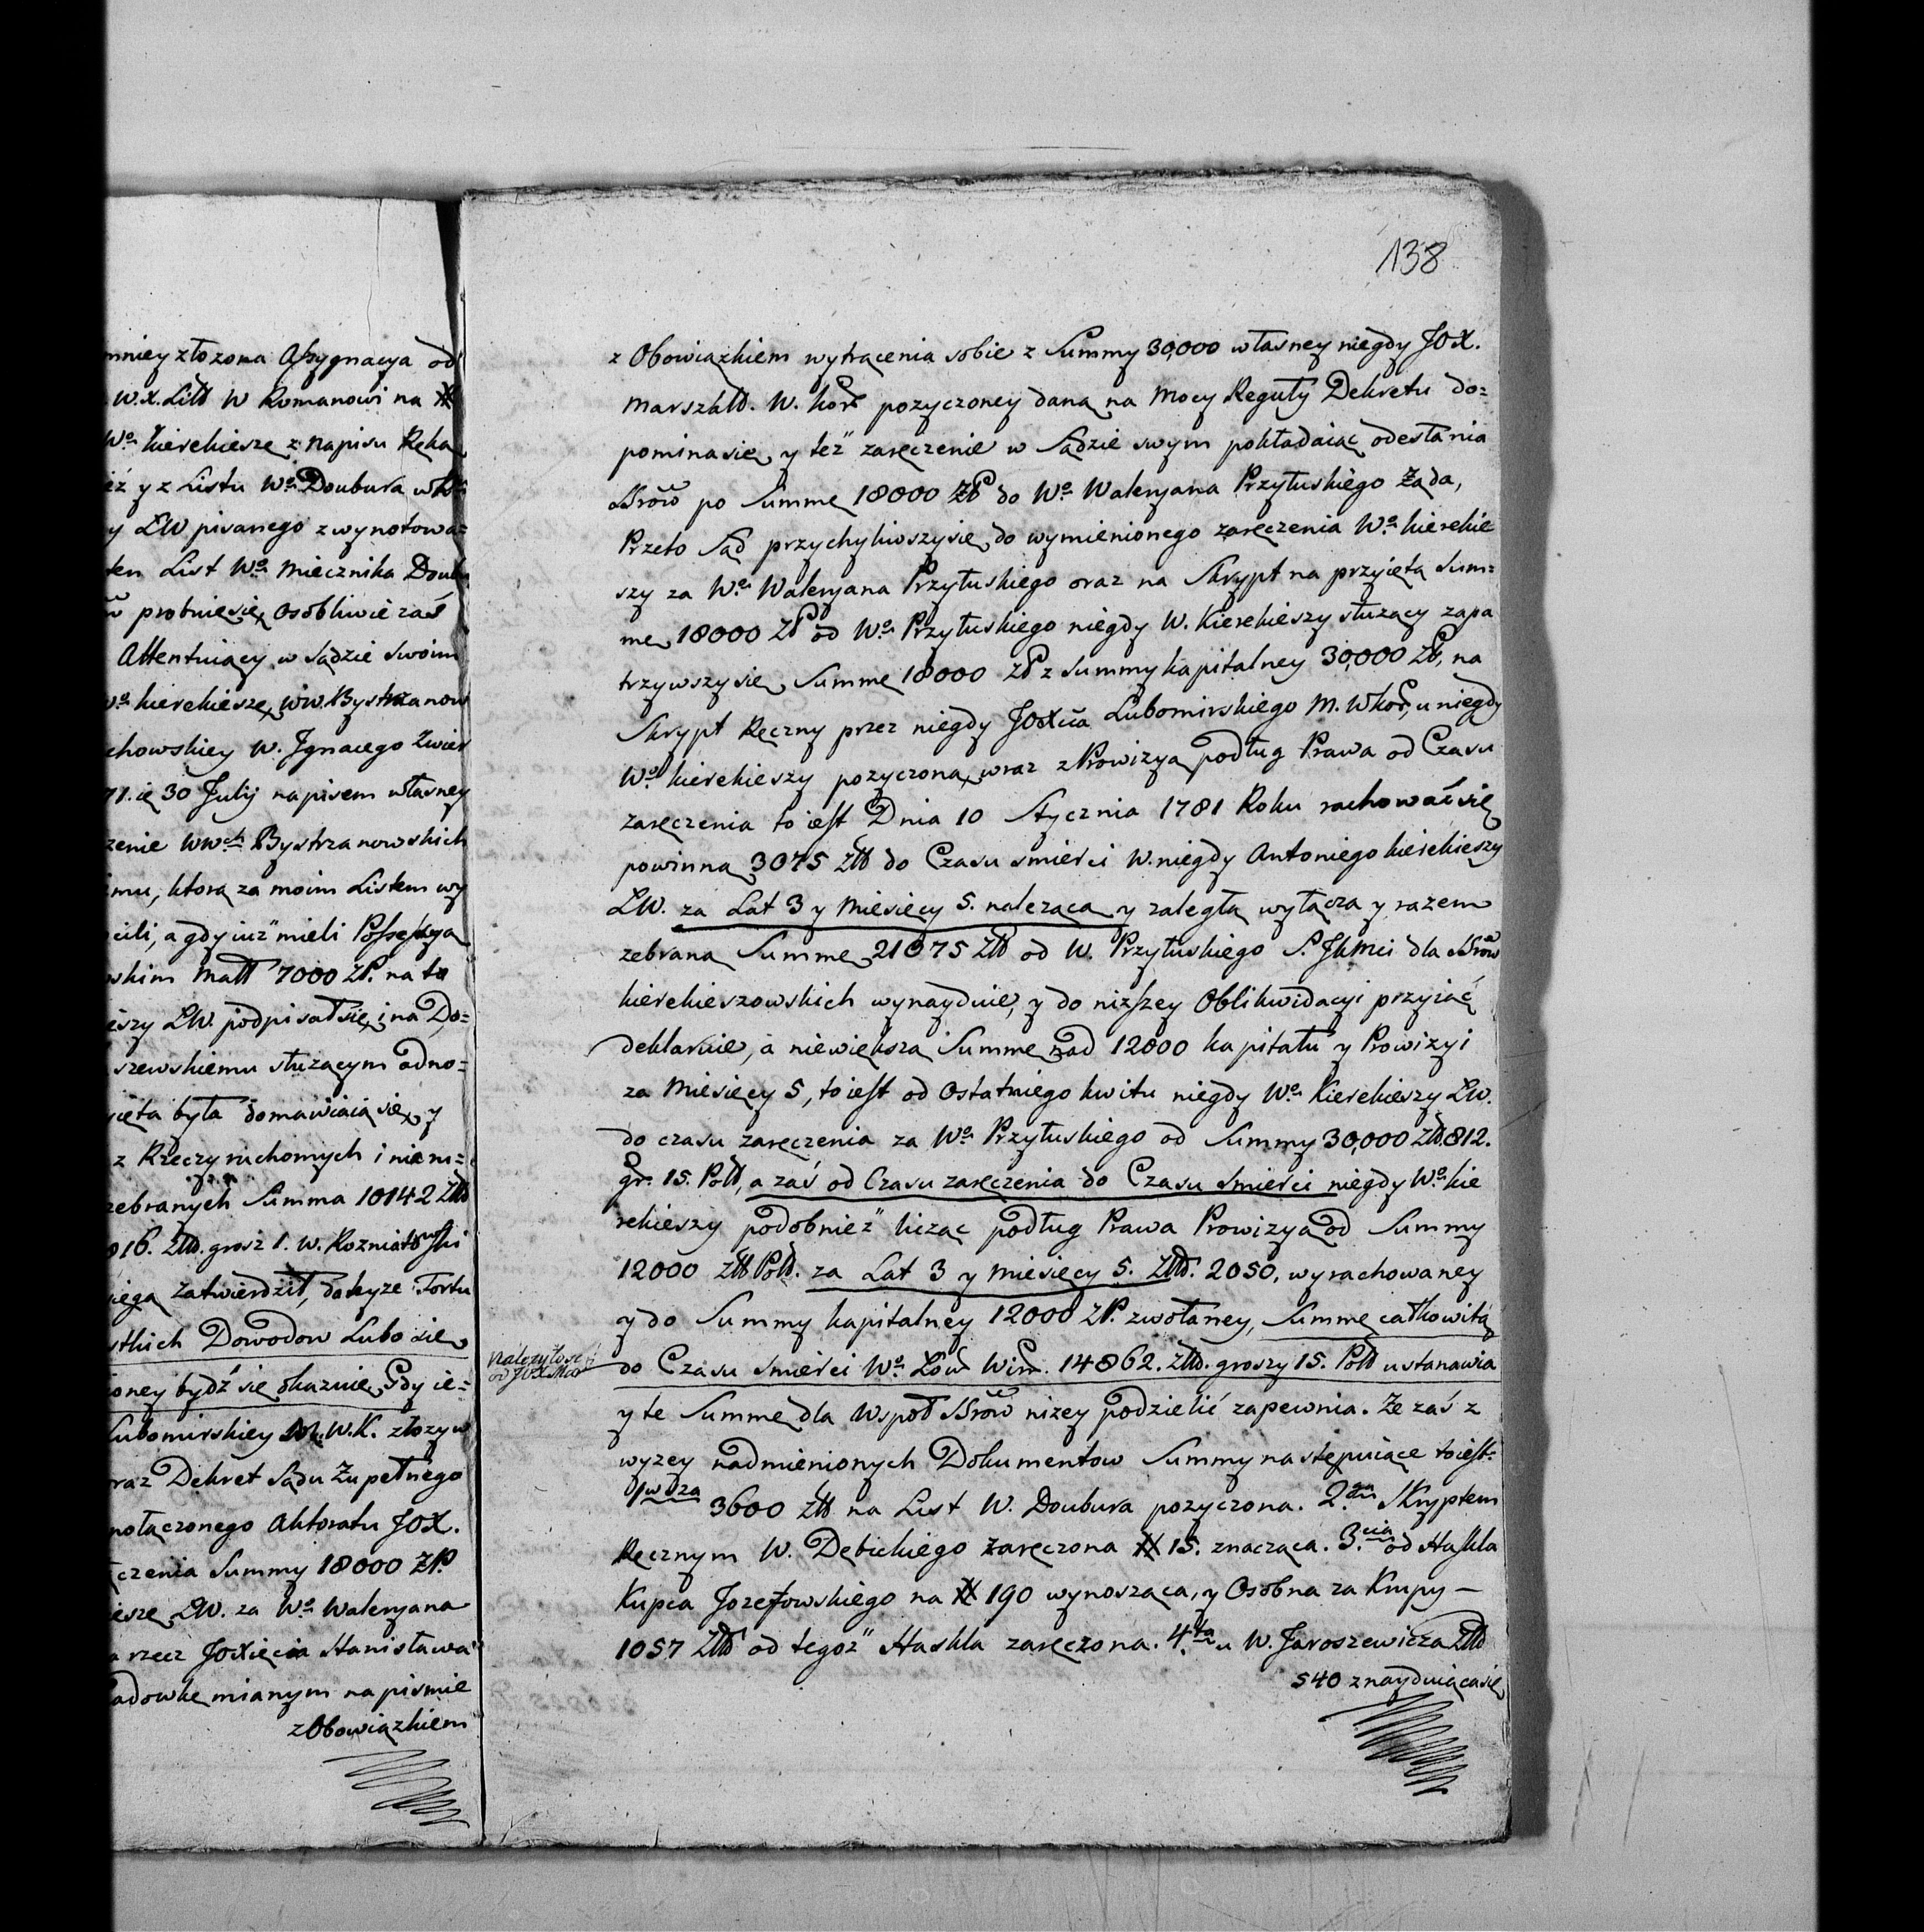 mniey złozona Assygnacya od
W.X. Litt W Romanowi na #
Wo Kierekiesze z Napisu Ręka
éz y z Listu Wo Doubura
y LW pisanego z wynotowa=
ten List Wo Miecznika Doub
probuiesię, Osobliwie zaś
Attentuiący w Sądzie Swoim
Wo Kierekieszę, WW. Bystrzanow
chowskiey W. Jgnacego Zwier
71. ię 30 Julij napisem własney
zenie WWch Bystrzanowskich
mu, ktorą za moim Listem wy
cili, a gdy iuż mieli Possessyą
skim Matt 7000 ZP. na to
eszy LW. podpisał się, i na Do=
szewskiemu słuzącym odno=
ięta była domawiaią się, y
z Rzeczy ruchomych i nieru=
zebranych Summa 10142 Złł
816. Złł. grosz 1. W. Kozniatowski
iega Zatwierdził, dokąże Fortu
stkich Dowodow Lubo się
oney bydź się okazuie, Gdy ie=
Lubomirskiey M.W.K. złozyw
raz Dekret Sądu Zupełnego
nołączonego Aktoratu JOX.
czenia Summy 18000 ZP.
iesze LW. za Wo Waleryana
a rzecz JOXięcia Stanisława
adowke mianym na pismie
z Obowiązkiem
138
z Obowiązkiem wytrącenia sobie z Summy 30,000 własney niegdy JOX.
Marszałł. W. Kor pozyczoney dana, na Mocy Reguły Dekretu do=
pomina się, y też zaręczenie w Sądzie swym pokładaiąc odesłania
SSrow po Summę 18000 ZłP do Wo Waleryana Przyłuskiego Ząda,
Przeto Sąd przychyliwszy się, do wymienionego zaręczenia Wo Kierekie
szy za Wo Waleryana Przyłuskiego oraz na Skrypt na przyięta Sum=
me 18000 ZP od Wo Przyłuskiego niegdy W. Kierekieszy słuzący zapa
trzywszy się, Summę 18000 ZP z Summy kapitalney 30,000 ZP, na
Skrypt Ręczny przez niegdy JOXcia Lubomirskiego M. WKor, u niegdy
Wo Kierekieszy pozyczoną, wraz z Prowizyą podług Prawa od Czasu
zaręczenia to iest Dnia 10 Stycznia 1781 Roku rachować się
powinną 3075 Złł do Czasu smierci W. niegdy Antoniego Kierekieszy
LW. za Lat 3 y Miesięcy 5. nalezącą y zaległą wyłącza y razem
zebraną Summę 21075 Złł od W. Przyłuskiego S. JKMci dla SSrow
Kierekieszowskich wynayduie, y do niższey Oblikwidacyi przyiąć
deklaruie, a niewiększą Summę nad 12000 kapitału y Prowizyi
za Miesięcy 5, to iest od Ostatniego kwitu niegdy Wo Kierekieszy LW.
do czasu zaręczenia za Wo Przyłuskiego od Summy 30,000 Złł. 812.
gr. 15. Poll, a zaś od Czasu zaręczenia do Czasu Smierci niegdy Wo Kie
rekieszy podobnież licząc podług Prawa Prowizyą od Summy
12000 Złł Poll. za Lat 3 y Miesięcy 5. Złłł. 2050, wyrachowaney
y do Summy kapitalney 12000 ZP. zwołaney, Summę całkowitą
Nalezytość
od JOXMci
do Czasu Smierci Wo Low Win. 14862. Złł. groszy 15. Poll ustanawia
y te Summę dla Wspoł SSrow nizey podzielić zapewnia. Ze zaś z
wyzey nadmienionych Dokumentow Summy następuiące to iest:
1wsza 3600 Złł na List W. Doubura pozyczona. 2.ga Skryptem
Ręcznym W. Dębickiego zaręczona # 15. znacząca. 3.cia od Haskla
Kupca Jozefowskiego na # 190 wynosząca, y Osobna za Krupy —
1057 Złłł od tegoż Haskla zaręczona. 4.ta u W. Jaroszewicza Złł
540 znayduiąca się